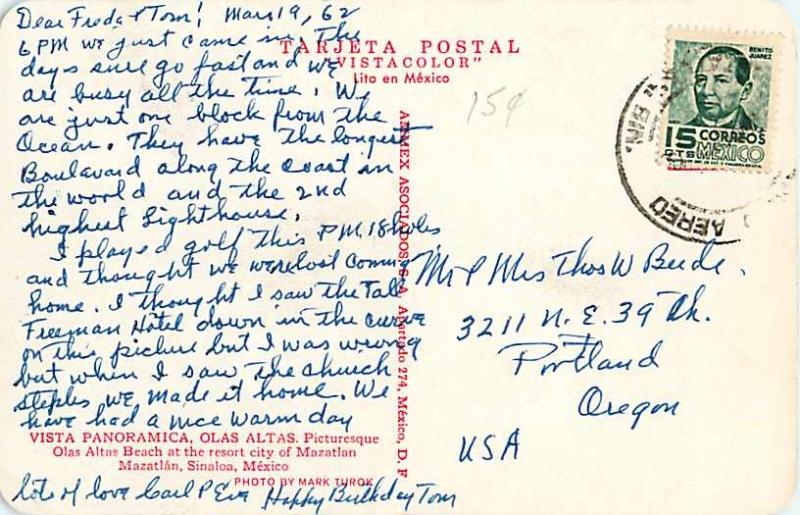 Dear Freda & Tom! Mar. 19, 62
6 PM we just came in, the
days sure go fast and we
are busy all the time. We
are just one block from the
Ocean. They have the longest
Boulavard along the Coast in
the world and the 2nd
highest Lighthouse.
I played golf this P.M. 18 holes
and thought we were lost coming
home. I thought I saw the Tall
Freeman Hotel down in the curve
on this picture but I was wrong
but when I saw the church
steples we made it home. We
have had a nice warm day
lots of love Carl & Eva Happy Birthday Tom
TARJETA POSTAL
"VISTACOLOR"
Lito en México
15¢
AMMEX ASOCIADOS, S. A. Apartado 274, México, D. F.
VISTA PANORAMICA, OLAS ALTAS. Picturesque
Olas Altas Beach at the resort city of Mazatlan
Mazatlán, Sinaloa, México
PHOTO BY MARK TUROK
BENITO
JUAREZ
15 CORREOS
CTS MEXICO
SIN.
AEREO
Mr & Mrs Thos W
3211 N.E. 39th.
Portland
Oregon
USA